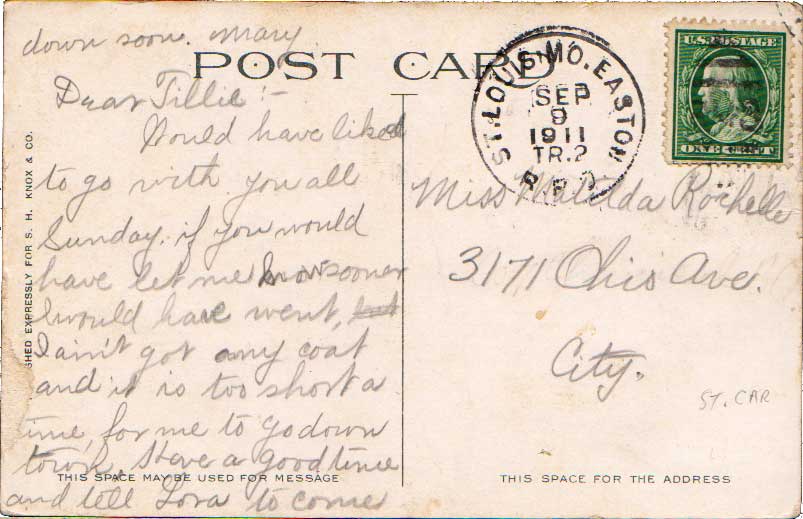 down soon. Mary
POST CARD
Dear Tillie :-
Would have liked
to go with you all
Sunday. if you would
have let me know sooner
I would have went,
I ain't got any coat
and it is too short a
time, for me to go down
town. Have a good time
and tell Lora to come
THIS SPACE MAY BE USED FOR MESSAGE
SHED EXPRESSLY FOR S. H. KNOX & CO.
ST. LOUIS, MO. EASTON
SEP
9
1911
TR.2
R P O
U.S. POSTAGE
ONE CENT
Miss Matilda Rochelle
3171 Ohio Ave.
City.
ST. CAR
THIS SPACE FOR THE ADDRESS